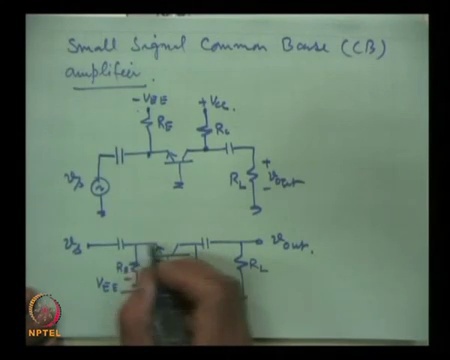 Small Signal Common Base (CB)
amplifier.
- VEE + VCC
RE RC
vs RL + vout -
vs vout.
RE RL
VEE -
NPTEL